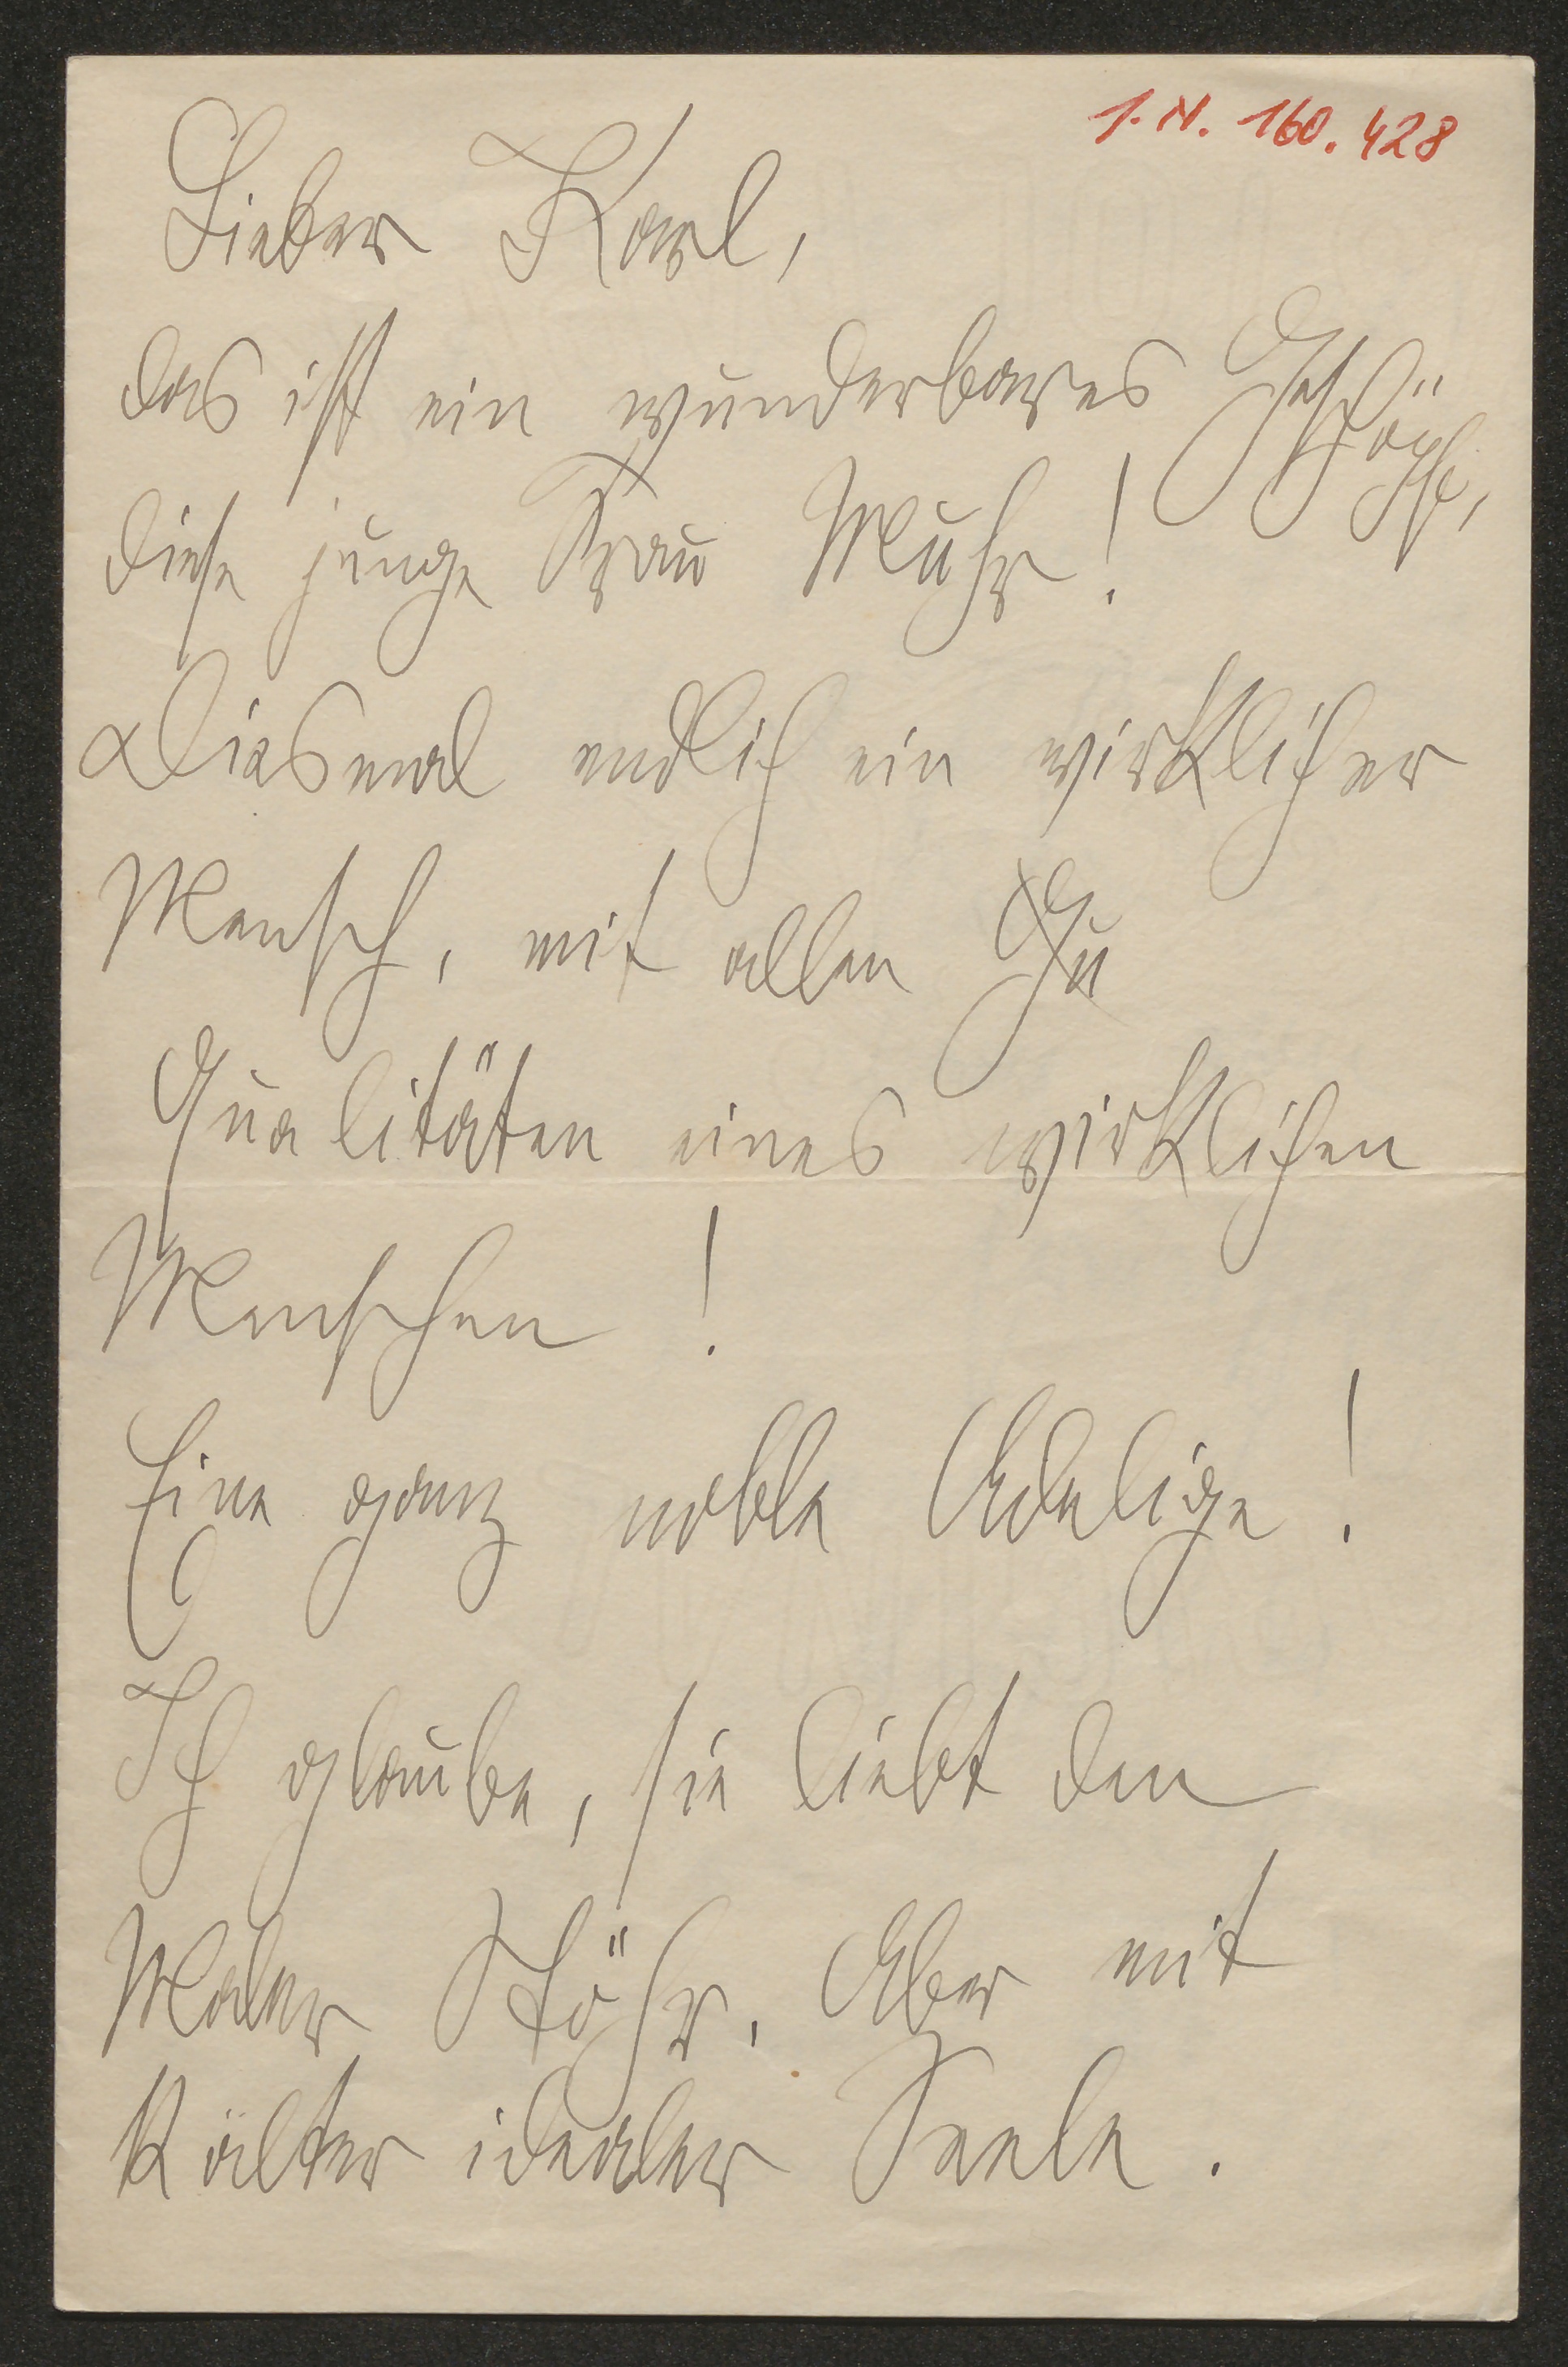 I. N. 160.428
Lieber Karl,
das ist ein wunderbares Geschöpf,
diese junge Frau Muhr!
Diesmal endlich ein wirklicher
Mensch, mit allen Qu
Qualitäten eines wirklichen
Menschen!
Eine ganz noble Adelige!
Ich glaube, sie liebt den
Maler Stöhr. Aber mit
kalter idealer Seele.